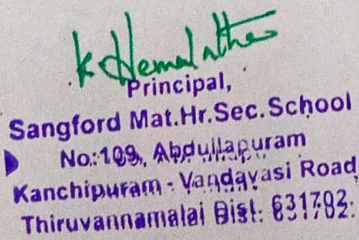 K Hemalatha
Principal,
Sangford Mat.Hr.Sec.School
No:109, Abdullapuram
Kanchipuram - Vandavasi Road
Thiruvannamalai Dist: 631702.